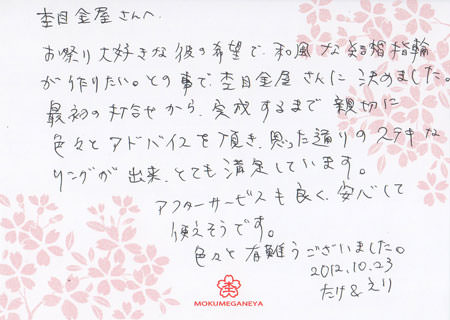 杢目金屋さんへ
お祭り大好きな彼の希望で、和風な結婚指輪
が作りたい。との事で、杢目金屋さんに決めました。
最初の打合せから、完成するまで親切に
色々とアドバイスを頂き、思った通りのステキな
リングが出来、とても満足しています。
アフターサービスも良く、安心して
使えそうです。
色々と有難うございました。
2012.10.23
たけ & えり
MOKUMEGANEYA